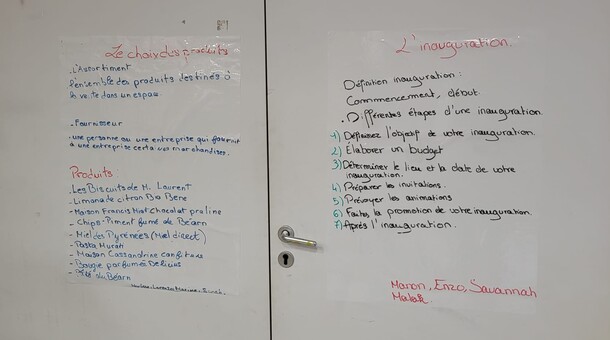 Le choix des produits
. L'Assortiment
l'ensemble des produits destinés à
la vente dans un espace.
. Fournisseur
. une personne ou une entreprise qui fournit
à une entreprise certaines marchandises.
Produits :
- Les Biscuits de M. Laurent
- Limonade citron Bo Bene
- Maison Francis Miot chocolat praline
- Chips Piment fumé de Béarn
- Miel des Pyrénées (Miel direct)
- Pasta
- Maison Cassandrine confitures
- Bougie parfumée Delicius
- du Béarn
L'inauguration.
Définition inauguration :
Commencement, début.
. Différentes étapes d'une inauguration.
1) Définissez l'objectif de votre inauguration.
2) Élaborer un budget
3) Déterminer le lieu et la date de votre
inauguration.
4) Préparer les invitations.
5) Prévoyer les animations
6) Faites la promotion de votre inauguration.
7) Après l'inauguration.
Manon, Enzo, Savannah